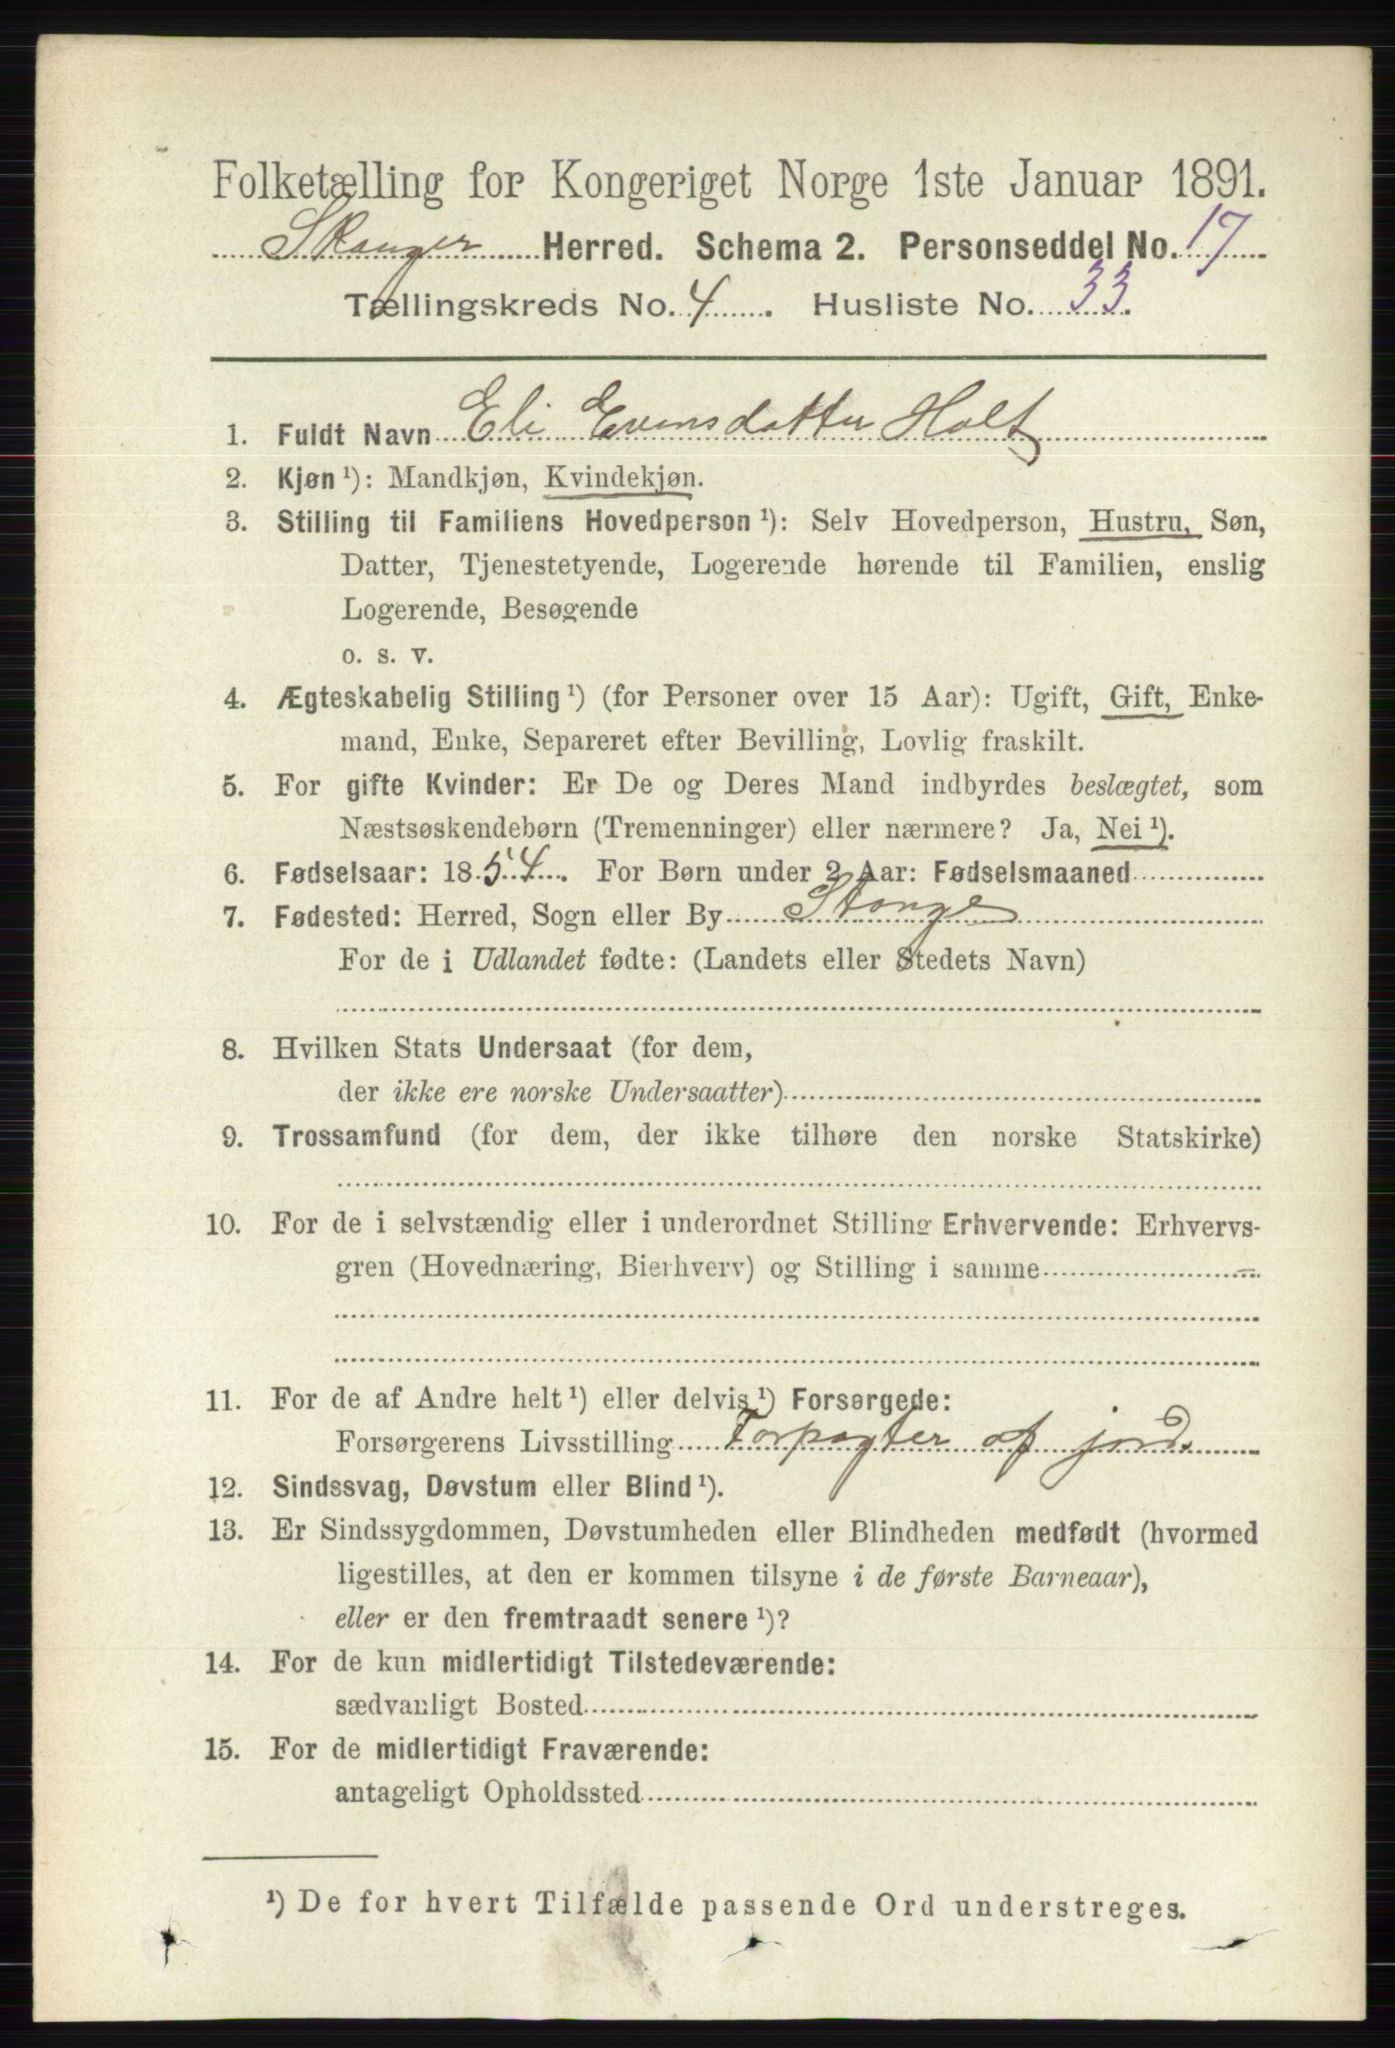 Folketælling for Kongeriget Norge 1ste Januar 1891.
Skauger Herred. Schema 2. Personseddel No. 17
Tællingskreds No. 4. Husliste No. 33.
1. Fuldt Navn Eli Evensdatter Holt
2. Kjøn ¹): Mandkjøn, Kvindekjøn.
3. Stilling til Familiens Hovedperson ¹): Selv Hovedperson, Hustru, Søn,
Datter, Tjenestetyende, Logerende hørende til Familien, enslig
Logerende, Besøgende
o. s. v.
4. Ægteskabelig Stilling ¹) (for Personer over 15 Aar): Ugift, Gift, Enke-
mand, Enke, Separeret efter Bevilling, Lovlig fraskilt.
5. For gifte Kvinder: Er De og Deres Mand indbyrdes beslægtet, som
Næstsøskendebørn (Tremenninger) eller nærmere? Ja, Nei ¹).
6. Fødselsaar: 1854. For Børn under 2 Aar: Fødselsmaaned
7. Fødested: Herred, Sogn eller By Stange
For de i Udlandet fødte: (Landets eller Stedets Navn)
8. Hvilken Stats Undersaat (for dem,
der ikke ere norske Undersaatter)
9. Trossamfund (for dem, der ikke tilhøre den norske Statskirke)
10. For de i selvstændig eller i underordnet Stilling Erhvervende: Erhvervs-
gren (Hovednæring, Bierhverv) og Stilling i samme
11. For de af Andre helt ¹) eller delvis ¹) Forsørgede:
Forsørgerens Livsstilling Forpagter af jord.
12. Sindssvag, Døvstum eller Blind ¹).
13. Er Sindssygdommen, Døvstumheden eller Blindheden medfødt (hvormed
ligestilles, at den er kommen tilsyne i de første Barneaar),
eller er den fremtraadt senere ¹)?
14. For de kun midlertidigt Tilstedeværende:
sædvanligt Bosted
15. For de midlertidigt Fraværende:
antageligt Opholdssted
¹) De for hvert Tilfælde passende Ord understreges.